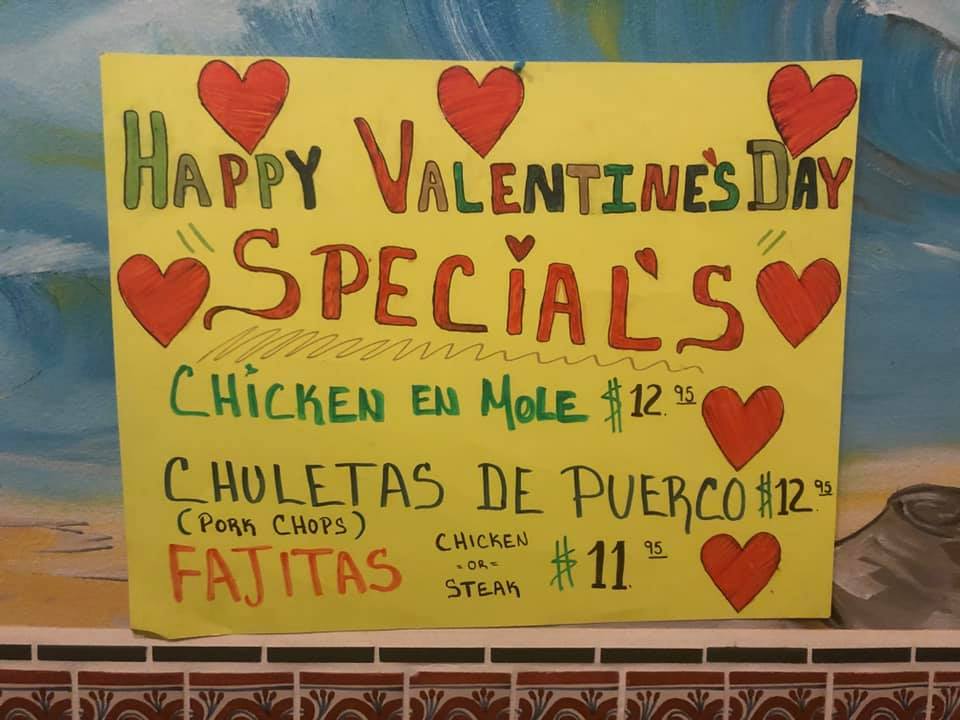 HAPPY VALENTINE'S DAY
SPECIAL'S
CHICKEN EN MOLE $12.95
CHULETAS DE PUERCO $12.95
(PORK CHOPS)
FAJITAS CHICKEN -OR- STEAK $11.95